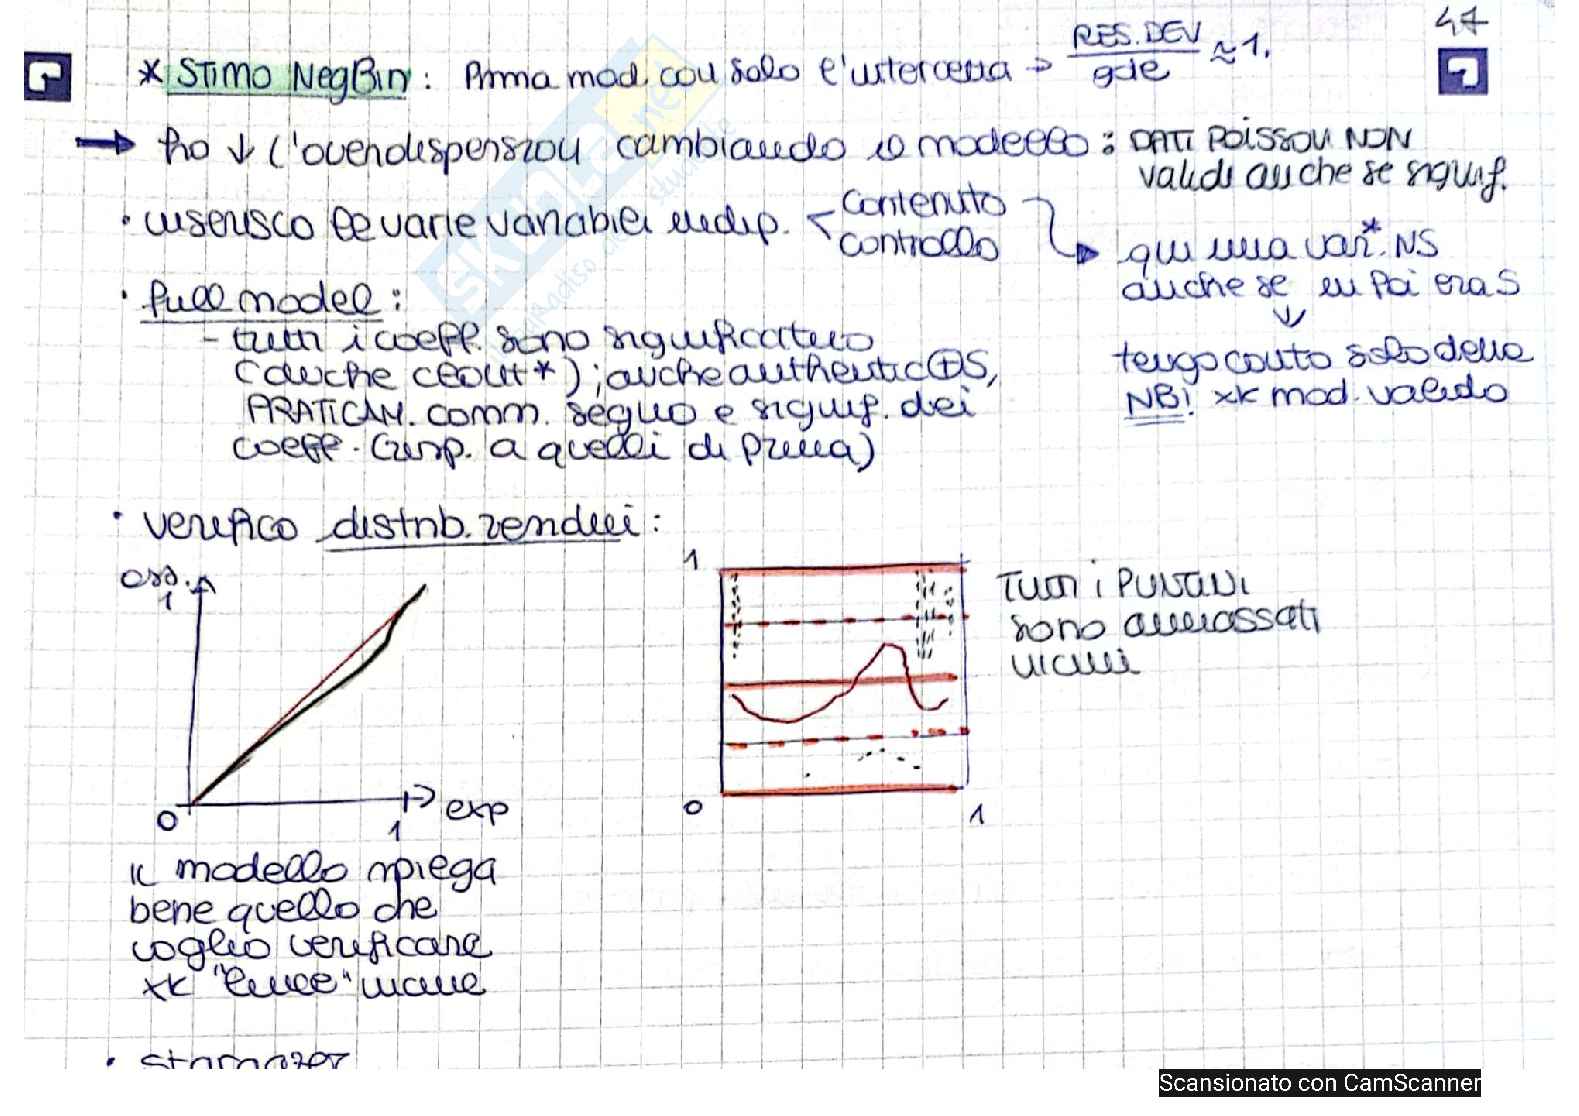 47
* STIMO NegBin : Prima mod. con solo l'intercetta → RES.DEV / gdl ≈ 1.
→ ho ↓ l'overdispersion cambiando il modello : DATI POISSON NON
validi anche se signif.
· inserisco le varie variabili indip. < contenuto
controllo
qui una var* NS
anche se in Poi era S
↓
tengo conto solo della
NB! xk mod. valido
· full model :
- tutti i coeff. sono significativo
(anche CEOUT*) ; anche authentic ⊕S,
PRATICAM. comm. segno e signif. dei
coeff. (risp. a quelli di prima)
· verifico distrib. residui :
oss.
1
0
1
exp
1
0
1
TUTTI i PUNTINI
sono ammassati
vicini
il modello spiega
bene quello che
voglio verificare
xk "linee" vicine
· stargazer
Scansionato con CamScanner